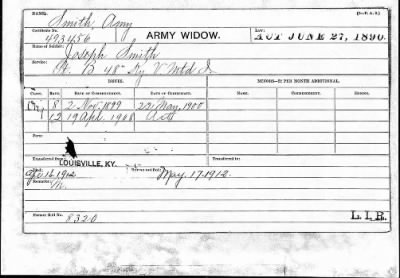 (3-P. & B.)
NAME: Smith, Amy
Certificate No. 493456 ARMY WIDOW. LAW: ACT JUNE 27, 1890.
Name of Soldier: Joseph Smith
Service: Pt. B 48" Ky V Mtd Inf
ISSUES. MINORS—$2 PER MONTH ADDITIONAL.
CLASS. RATE. DATE OF COMMENCEMENT. DATE OF CERTIFICATE. NAME. COMMENCEMENT. ENDING.
8 2 Nov. 1899 22 May, 1900
12 19 Apl. 1908 Act
Transferred from Transferred to
LOUISVILLE, KY.
Died: Apl 16 1912 May, 17, 1912.
Remarks:
Former Roll No. 8320 L. I. B.